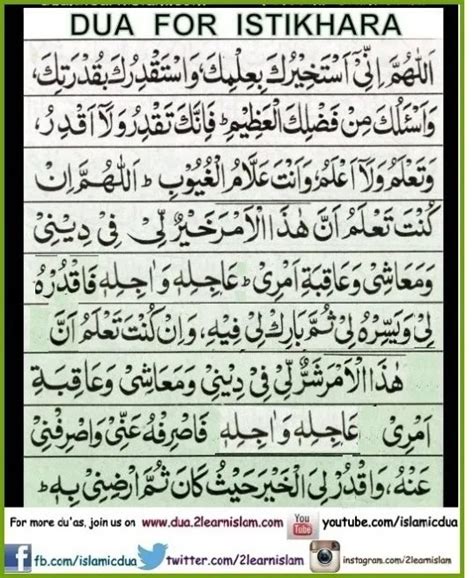 DUA FOR ISTIKHARA
اَللّٰهُمَّ اِنِّىْ اَسْتَخِيْرُكَ بِعِلْمِكَ، وَاسْتَقْدِرُكَ بِقُدْرَتِكَ،
وَاَسْئَلُكَ مِنْ فَضْلِكَ الْعَظِيْمِ ط فَاِنَّكَ تَقْدِرُ وَلَآ اَقْدِرُ،
وَتَعْلَمُ وَلَآ اَعْلَمُ، وَاَنْتَ عَلَّامُ الْغُيُوْبِ ط اَللّٰهُمَّ اِنْ
كُنْتَ تَعْلَمُ اَنَّ هٰذَا الْاَمْرَ خَيْرٌ لِّىْ فِىْ دِيْنِىْ
وَمَعَاشِىْ وَعَاقِبَةِ اَمْرِىْ ط عَاجِلِهٖ وَاٰجِلِهٖ فَاقْدُرْهُ
لِىْ وَيَسِّرْهُ لِىْ ثُمَّ بَارِكْ لِىْ فِيْهِ، وَاِنْ كُنْتَ تَعْلَمُ اَنَّ
هٰذَا الْاَمْرَ شَرٌّ لِّىْ فِىْ دِيْنِىْ وَمَعَاشِىْ وَعَاقِبَةِ
اَمْرِىْ عَاجِلِهٖ وَاٰجِلِهٖ فَاصْرِفْهُ عَنِّىْ وَاصْرِفْنِىْ
عَنْهُ، وَاقْدُرْ لِىَ الْخَيْرَ حَيْثُ كَانَ ثُمَّ اَرْضِنِىْ بِهٖ ط
For more du'as, join us on www.dua.2learnislam.com You Tube youtube.com/islamicdua
f fb.com/islamicdua twitter.com/2learnislam instagram.com/2learnislam